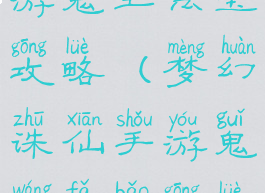 游鬼王法宝
gōng lüè mèng huàn
攻略（梦幻
zhū xiān shǒu yóu guǐ
诛仙手游鬼
wáng fǎ bǎo gōng lüè